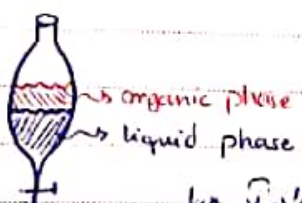 organic phase
liquid phase